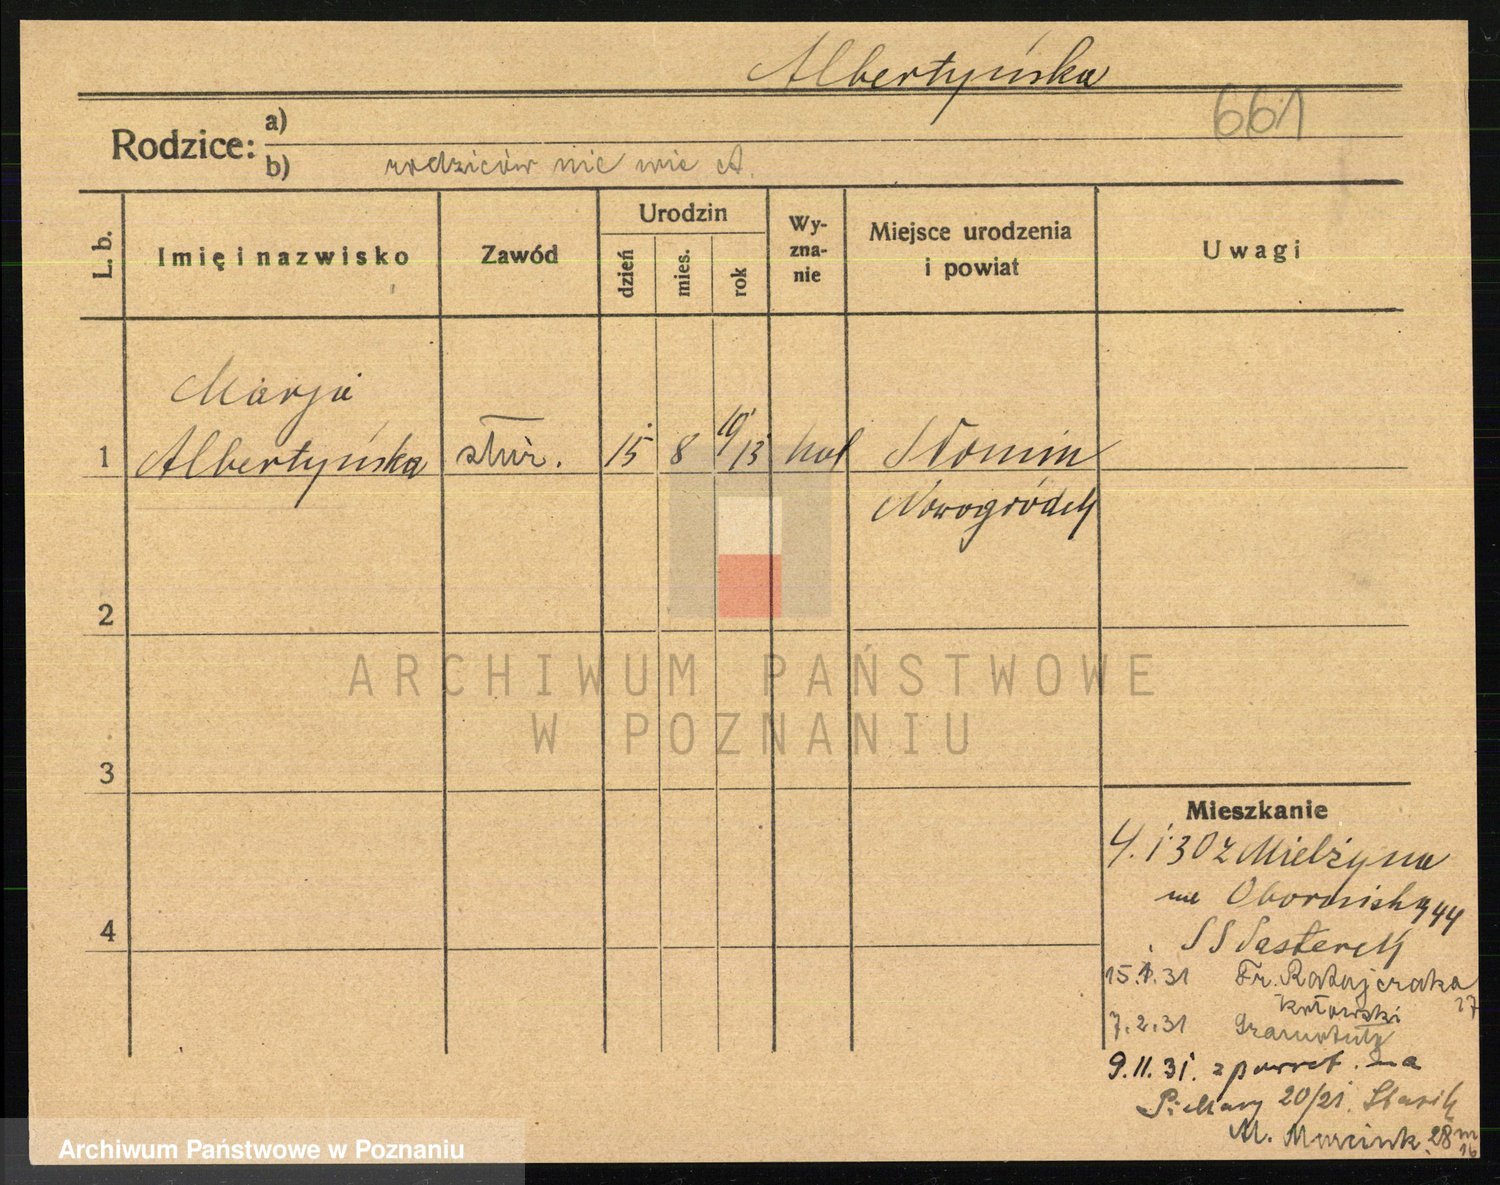 Albertyńska
661
Rodzice: a)
b) rodziców nie wie A.
L. b.
Imię i nazwisko
Zawód
Urodzin
dzień
mies.
rok
Wy-
zna-
nie
Miejsce urodzenia
i powiat
Uwagi
Marja
1 Albertyńska służ. 15 8 13 kat Słonim
Nowogródek
2
ARCHIWUM PAŃSTWOWE
W POZNANIU
3
Mieszkanie
4. 1 30 z Mielżyna
na Obornicka 44
4
15.1.31 Fr. Ratajczaka
27
7.2.31
9.11.31. z powrot.
P. Mary 20/21.
M. Marcink. 28 m
16
Archiwum Państwowe w Poznaniu